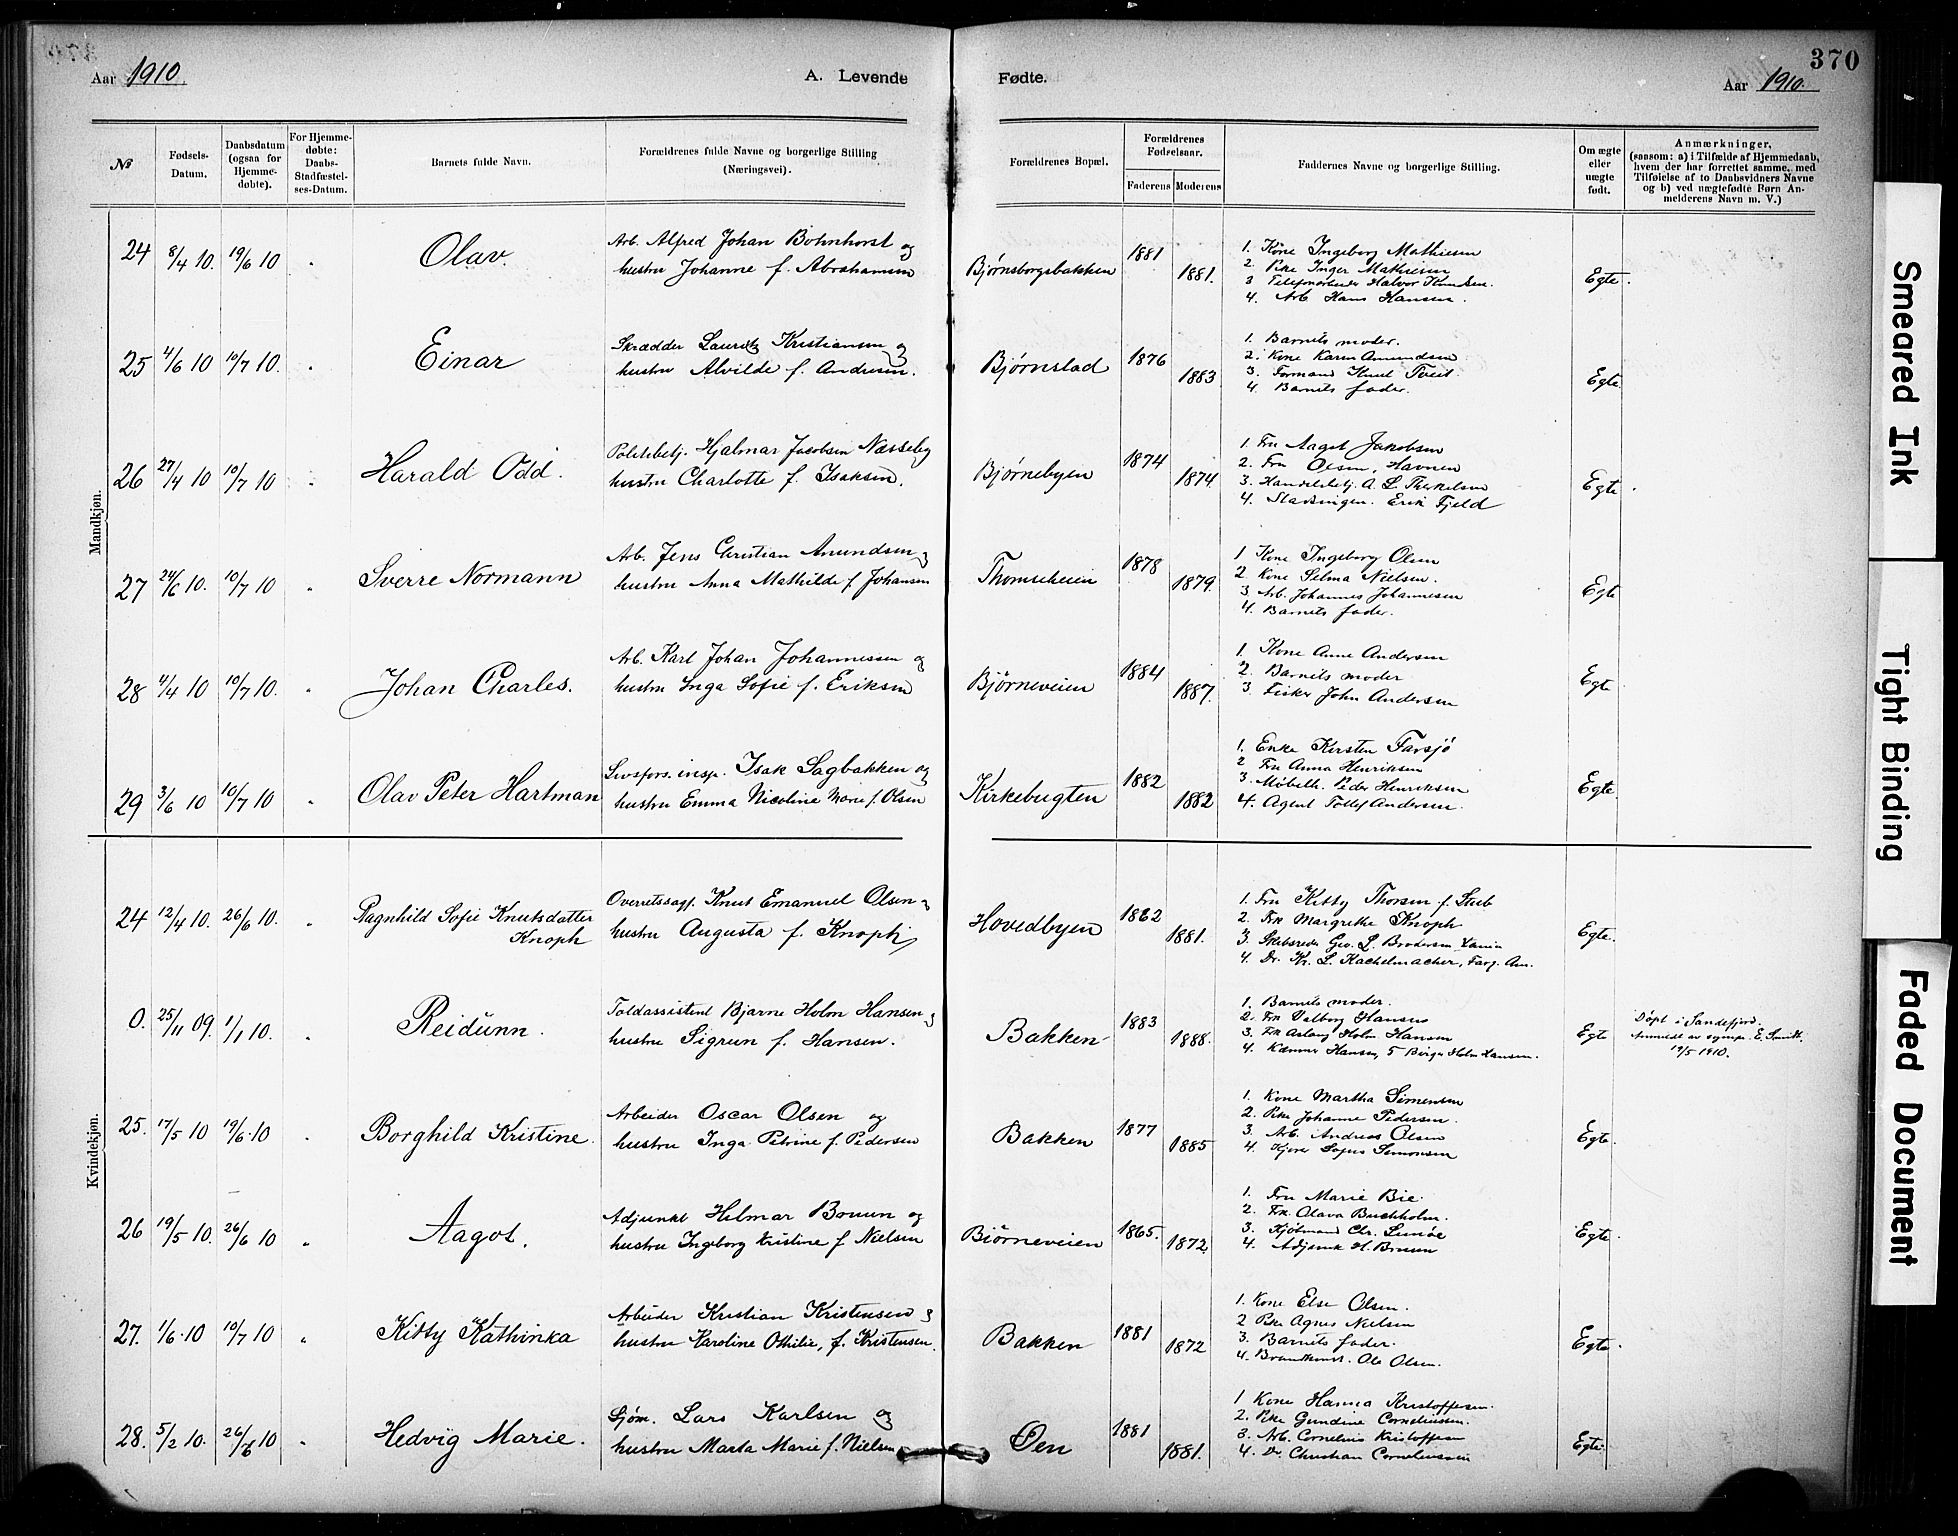 370
Aar 1910.
A. Levende Fødte.
Aar 1910.
No
Fødsels-Datum.
Daabsdatum (ogsaa for Hjemmedøbte).
For Hjemmedøbte: Daabs-Stadfæstelses-Datum.
Barnets fulde Navn.
Forældrenes fulde Navne og borgerlige Stilling (Næringsvei).
Forældrenes Bopæl.
Forældrenes Fødselsaar.
Faderens Moderens
Faddernes Navne og borgerlige Stilling.
Om ægte eller uægte født.
Anmærkninger,
(saasom: a) i Tilfælde af Hjemmedaab, hvem der har forrettet samme, med Tilføielse af to Daabsvidners Navne og b) ved uægtefødte Børn Anmelderens Navn m. V.)
Mandkjøn.
24 8/4 10. 19/6 10 Olav.
Arb. Alfred Johan Bohnhorst og
hustru Johanne f. Abrahamsen
Bjørnsborgsbakken 1881 1881.
1. Kone Ingeborg Mathiesen
2. Pike Inger Mathiesen
3 Telefonarbeider Halvor Knudsen.
4. Arb. Hans Hansen.
Egte.
25 4/6 10 10/7 10. Einar
Skrædder Lauritz Kristiansen og
hustru Alvilde f. Andersen.
Bjørnstad 1876 1883
1. Barnets moder.
2. Kone Karen Amundsen
3. Formand Knut Tveit.
4. Barnets fader.
Egte
26 27/4 10 10/7 10 Harald Odd.
Politibetj. Hjalmar Jacobsen Næsseby
hustru Charlotte f. Isaksen.
Bjørnebyen 1874 1874
1. Fru Aagot Jakobsen
2. Fru Olsen, Havnen
3. Handelsbetj. A. L. Therkelsen
4. Stadsingen. Erik Fjeld
Egte.
27 24/6 10. 10/7 10 Sverre Normann
Arb. Jens Christian Amundsen og
hustru Anna Mathilde f Johansen
Thomseheien 1878 1879.
1 Kone Ingeborg Olsen
2 Kone Selma Nielsen.
3 Arb. Johannes Johannesen
4. Barnets fader.
Egte
28 4/4 10 10/7 10. Johan Charles.
Arb. Karl Johan Johannessen og
hustru Inga Sofie f. Eriksen
Bjørneveien 1884 1887.
1. Kone Anne Andersen
2. Barnets moder
3. Fisker John Andersen
Egte
29 3/6 10 10/7 10 Olav Peter Hartman
Livsfors. insp. Isak Sagbakken og
hustru Emma Nicoline Marie f. Olsen
Kirkebugten 1882 1882
1. Enke Kirsten Farsjö
2 Fru Anna Henriksen
3. Møbelh. Peder Henriksen
4. Agent Tollef Andersen.
Egte.
Kvindekjøn.
24 12/4 10. 26/6 10. Ragnhild Sofie Knutsdatter
Knoph
Overretssagf. Knut Emanuel Olsen og
hustru Augusta f. Knoph
Hovedbyen 1882 1881.
1. Fru Kitty Thorsen f. Stub
2. Frk Margrethe Knoph
3. Skibsreder Geo. L. Brodersen
4. Dr. Kr. L. Kachelmacher
Egte.
0. 25/11 09. 1/1 10. Reidunn.
Toldassistent Bjarne Holm Hansen og
hustru Sigrun f. Hansen.
Bakken 1883 1888.
1. Barnets moder.
2. Frk Valborg Hansen
3. Frk Aslaug Holm Hansen
4. Kæmner Hansen, 5 Birger Holm Hansen.
Egte
Döpt i Sandefjord.
Anmeldt av sognepr. E. Smitt.
19/5 1910.
25. 17/5 10 19/6 10 Borghild Kristine.
Arbeider Oscar Olsen og
hustru Inga Petrine f. Pedersen
Bakken 1877 1885
1. Kone Martha Simensen
2. Pike Johanne Pedersen.
3. Arb. Andreas Olsen
4. Kjører Sofus Simonsen
Egte.
26 19/5 10. 26/6 10 Aagot.
Adjunkt Hilmar Bruun og
hustru Ingeborg Kristine f. Nielsen
Biörneveien 1865. 1872
1. Fru Marie Bie.
2. Frk. Olava Buchholm.
3. Kjøbmand Chr. Lindøe
4. Adjunk H. Bruun
Egte.
27. 1/6 10 10/7 10 Kitty Kathinka
Arbeider Kristian Kristensen og
hustru Karoline Othilie, f. Kristensen.
Bakken 1881 1872
1. Kone Else Olsen.
2 Pike Agnes Nielsen
3. Barnets fader.
4. Brandkonst. Ole Olsen.
Egte.
28. 5/2 10. 26/6 10 Hedvig Marie.
Sjøm. Lars Karlsen og
hustru Marta Marie f. Nielsen
Øen 1881 1881.
1 Kone Hanna Kristoffersen.
2. Pike Gundine Corneliussen.
3. Arb. Cornelius Kristoffersen
4. Do. Christian Corneliussen
Egte.
Smeared Ink
Tight Binding
Faded Document